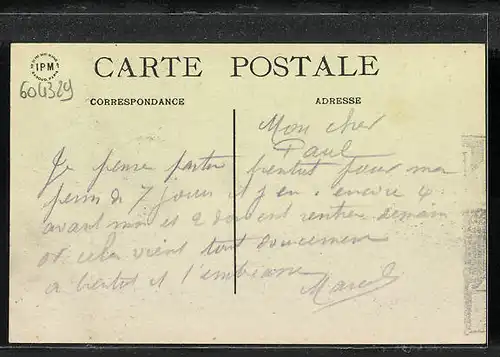 IPM
CARTE POSTALE
604329
CORRESPONDANCE
ADRESSE
Mon cher
Paul
Je pense partir bientot pour ma
perm de 7 jours il y en . encore 4
avant moi et 2 doivent rentrer demain
et cela vient tout doucement
a bientot et t'embrasse
Marcel